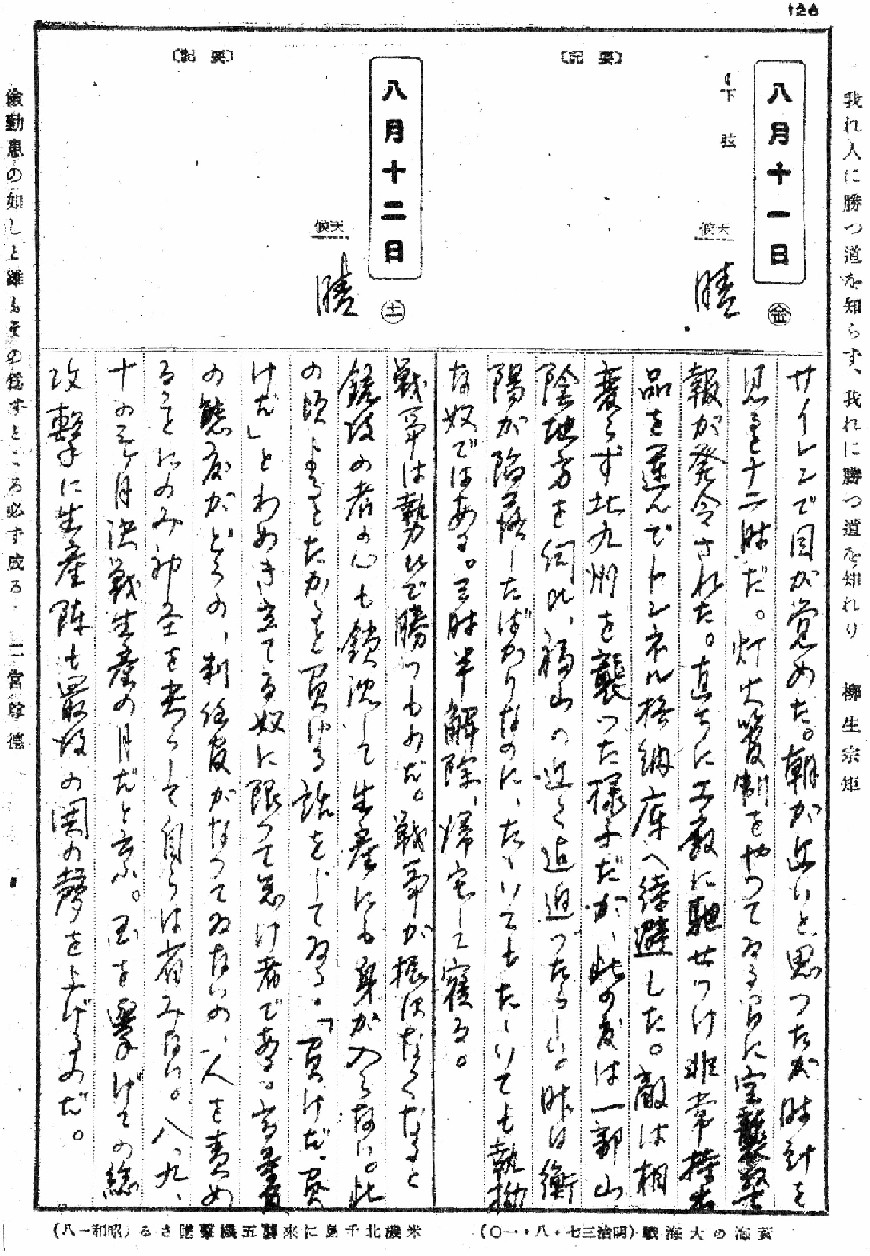 126
我れ人に勝つ道を知らず、我れに勝つ道を知れり 柳生宗矩
八月十一日
㊎
下弦
天候
晴
〔要記〕
サイレンで目が覚めた。朝が近いと思つたが時計を
見ると十二時だ。灯火管制をやつてゐる間に空襲警
報が発令された。直ちに工敵に馳せつけ非常持出
品を運んでトンネル格納庫へ待避した。敵は相
変らず北九州を襲つた様子だが、此の度は一部山
陰地方を伺ひ、福山の近く迄迫つたらしい。昨日衡
陽が陥落したばかりなのに、たゝいてもたゝいても執拗
な奴ではある。三時半解除、帰宅して寝る。
黄海の大海戦(明治三七・八・一〇)
八月十二日
㊏
天候
晴
〔要記〕
戦争は勢ひで勝つものだ。戦争が振はなくなると
銃後の者の心も銷沈して生産にも身が入らない。此
の頃よるとたかると負ける話をしてゐる。「負けだ、負
けだ」とわめき立てる奴に限つて怠け者である。
の態度がどうの、責任感がなつてゐないの、人を責め
ることにのみ神圣を尖らして自らは省みない。八、九、
十の三ヶ月決戦生産の月だと云ふ。国を挙げての総
攻撃に生産陣も最後の鬨の声を上げるのだ。
米機北千島に来襲五機撃墜さる(昭和一八)
の如しと雖もその為すところ必ず成る。 二宮尊徳